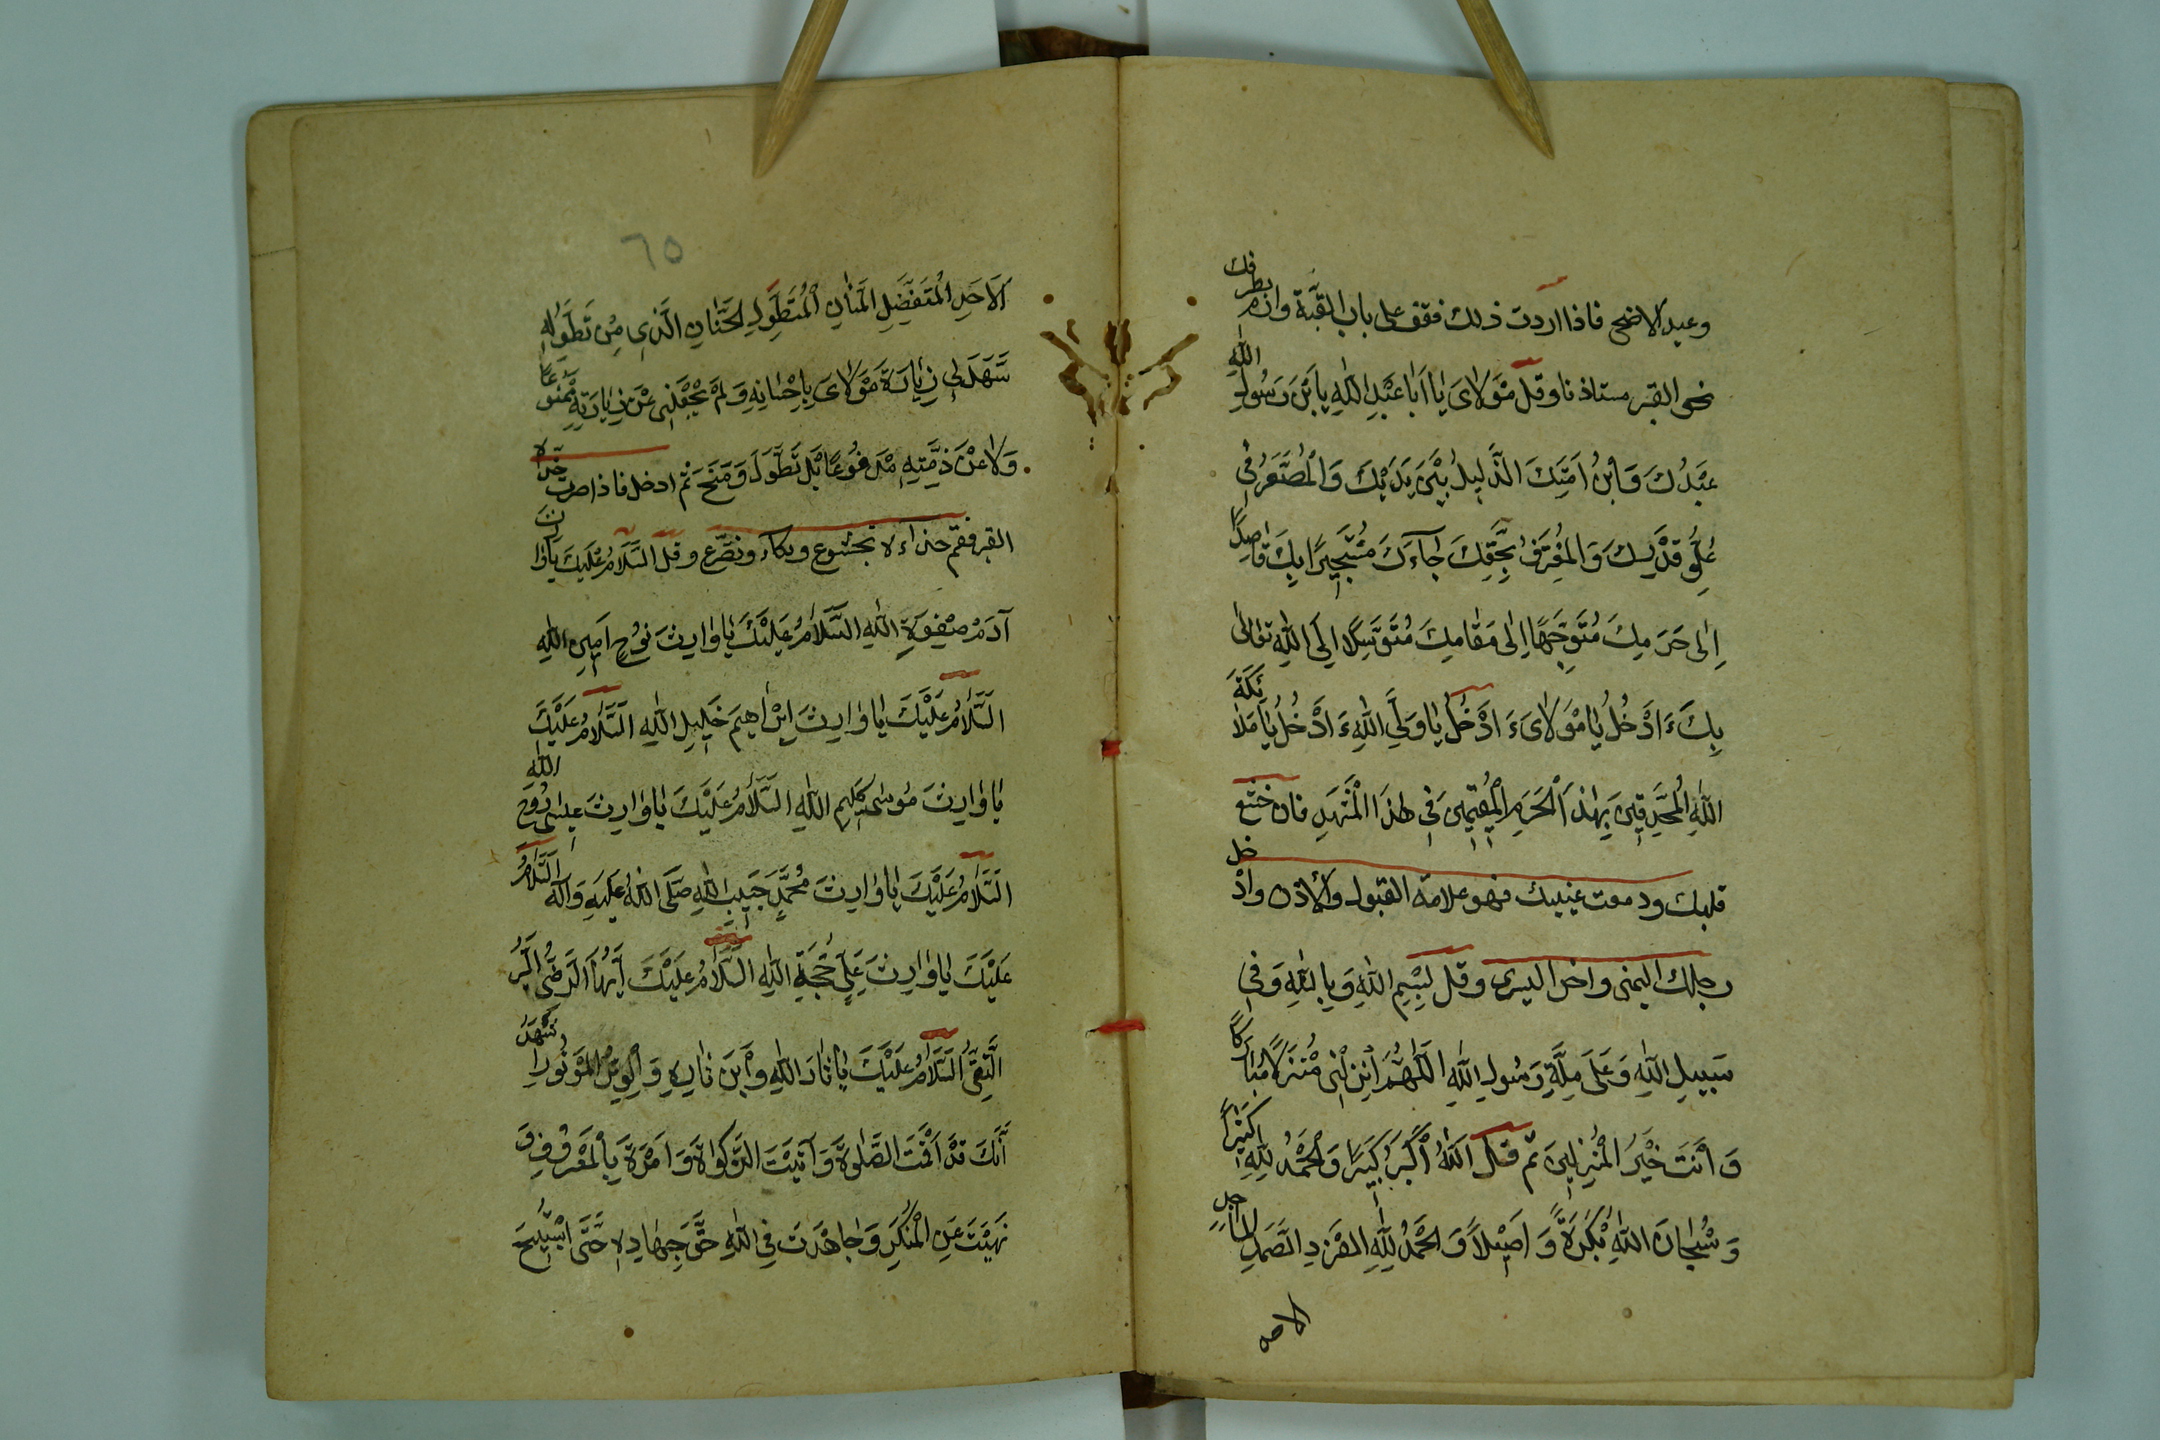 وعيد الاضحى فاذا اردت ذلك فقف على باب القبة وارم بطرفك
نحو القبر مستاذنا وقل مَوْلَايَ يَا اَبَا عَبْدِ اللهِ يَا بْنَ رَسُولِ اللهِ
عَبْدُكَ وَابْنُ اَمَتِكَ الذَّلِيلُ بَيْنَ يَدَيْكَ وَالْمُصَغَّرُ فِي
عُلُوِّ قَدْرِكَ وَالْمُعْتَرِفُ بِحَقِّكَ جَاءَكَ مُسْتَجِيرًا بِكَ قَاصِدًا
اِلَى حَرَمِكَ مُتَوَجِّهًا اِلَى مَقَامِكَ مُتَوَسِّلًا اِلَى اللهِ تَعَالَى
بِكَ ءَاَدْخُلُ يَا مَوْلَايَ ءَاَدْخُلُ يَا وَلِيَّ اللهِ ءَاَدْخُلُ يَا مَلَائِكَةَ
اللهِ الْمُحْدِقِينَ بِهٰذَا الْحَرَمِ الْمُقِيمِينَ فِي هٰذَا الْمَشْهَدِ فان خشع
قلبك ودمعت عينيك فهو علامة القبول والاذن وادخل
رجلك اليمنى واخر اليسرى وقل بِسْمِ اللهِ وَبِاللهِ وَفِي
سَبِيلِ اللهِ وَعَلَى مِلَّةِ رَسُولِ اللهِ اللّٰهُمَّ اَنْزِلْنِي مُنْزَلًا مُبَارَكًا
وَاَنْتَ خَيْرُ الْمُنْزِلِينَ ثم قل اَللهُ اَكْبَرُ كَبِيرًا وَالْحَمْدُ لِلّٰهِ كَثِيرًا
وَسُبْحَانَ اللهِ بُكْرَةً وَاَصِيلًا وَالْحَمْدُ لِلّٰهِ الْفَرْدِ الصَّمَدِ الْمَاجِدِ
الاحد
٦٥
الْاَحَدِ الْمُتَفَضِّلِ الْمَنَّانِ الْمُتَطَوِّلِ الْحَنَّانِ الَّذِي مِنْ تَطَوُّلِهِ
سَهَّلَ لِي زِيَارَةَ مَوْلَايَ بِاِحْسَانِهِ وَلَمْ يَجْعَلْنِي عَنْ زِيَارَتِهِ مَمْنُوعًا
وَلَا عَنْ ذِمَّتِهِ مَدْفُوعًا بَلْ تَطَوَّلَ وَمَنَحَ ثم ادخل فاذا صرت حذاء
القبر فقم حذاءه بخشوع وبكاء وتضرع وقل اَلسَّلَامُ عَلَيْكَ يَا وَارِثَ
آدَمَ صِفْوَةِ اللهِ السَّلَامُ عَلَيْكَ يَا وَارِثَ نُوحٍ اَمِينِ اللهِ
اَلسَّلَامُ عَلَيْكَ يَا وَارِثَ اِبْرَاهِيمَ خَلِيلِ اللهِ اَلسَّلَامُ عَلَيْكَ
يَا وَارِثَ مُوسَى كَلِيمِ اللهِ السَّلَامُ عَلَيْكَ يَا وَارِثَ عِيسَى رُوحِ اللهِ
اَلسَّلَامُ عَلَيْكَ يَا وَارِثَ مُحَمَّدٍ حَبِيبِ اللهِ صَلَّى اللهُ عَلَيْهِ وَآلِهِ السَّلَامُ
عَلَيْكَ يَا وَارِثَ عَلِيٍّ حُجَّةِ اللهِ السَّلَامُ عَلَيْكَ اَيُّهَا الْوَصِيُّ الْبَرُّ
التَّقِيُّ السَّلَامُ عَلَيْكَ يَا ثَارَ اللهِ وَابْنَ ثَارِهِ وَالْوِتْرَ الْمَوْتُورَ اَشْهَدُ
اَنَّكَ قَدْ اَقَمْتَ الصَّلٰوةَ وَآتَيْتَ الزَّكٰوةَ وَاَمَرْتَ بِالْمَعْرُوفِ وَ
نَهَيْتَ عَنِ الْمُنْكَرِ وَجَاهَدْتَ فِي اللهِ حَقَّ جِهَادِهِ حَتَّى اسْتُبِيحَ